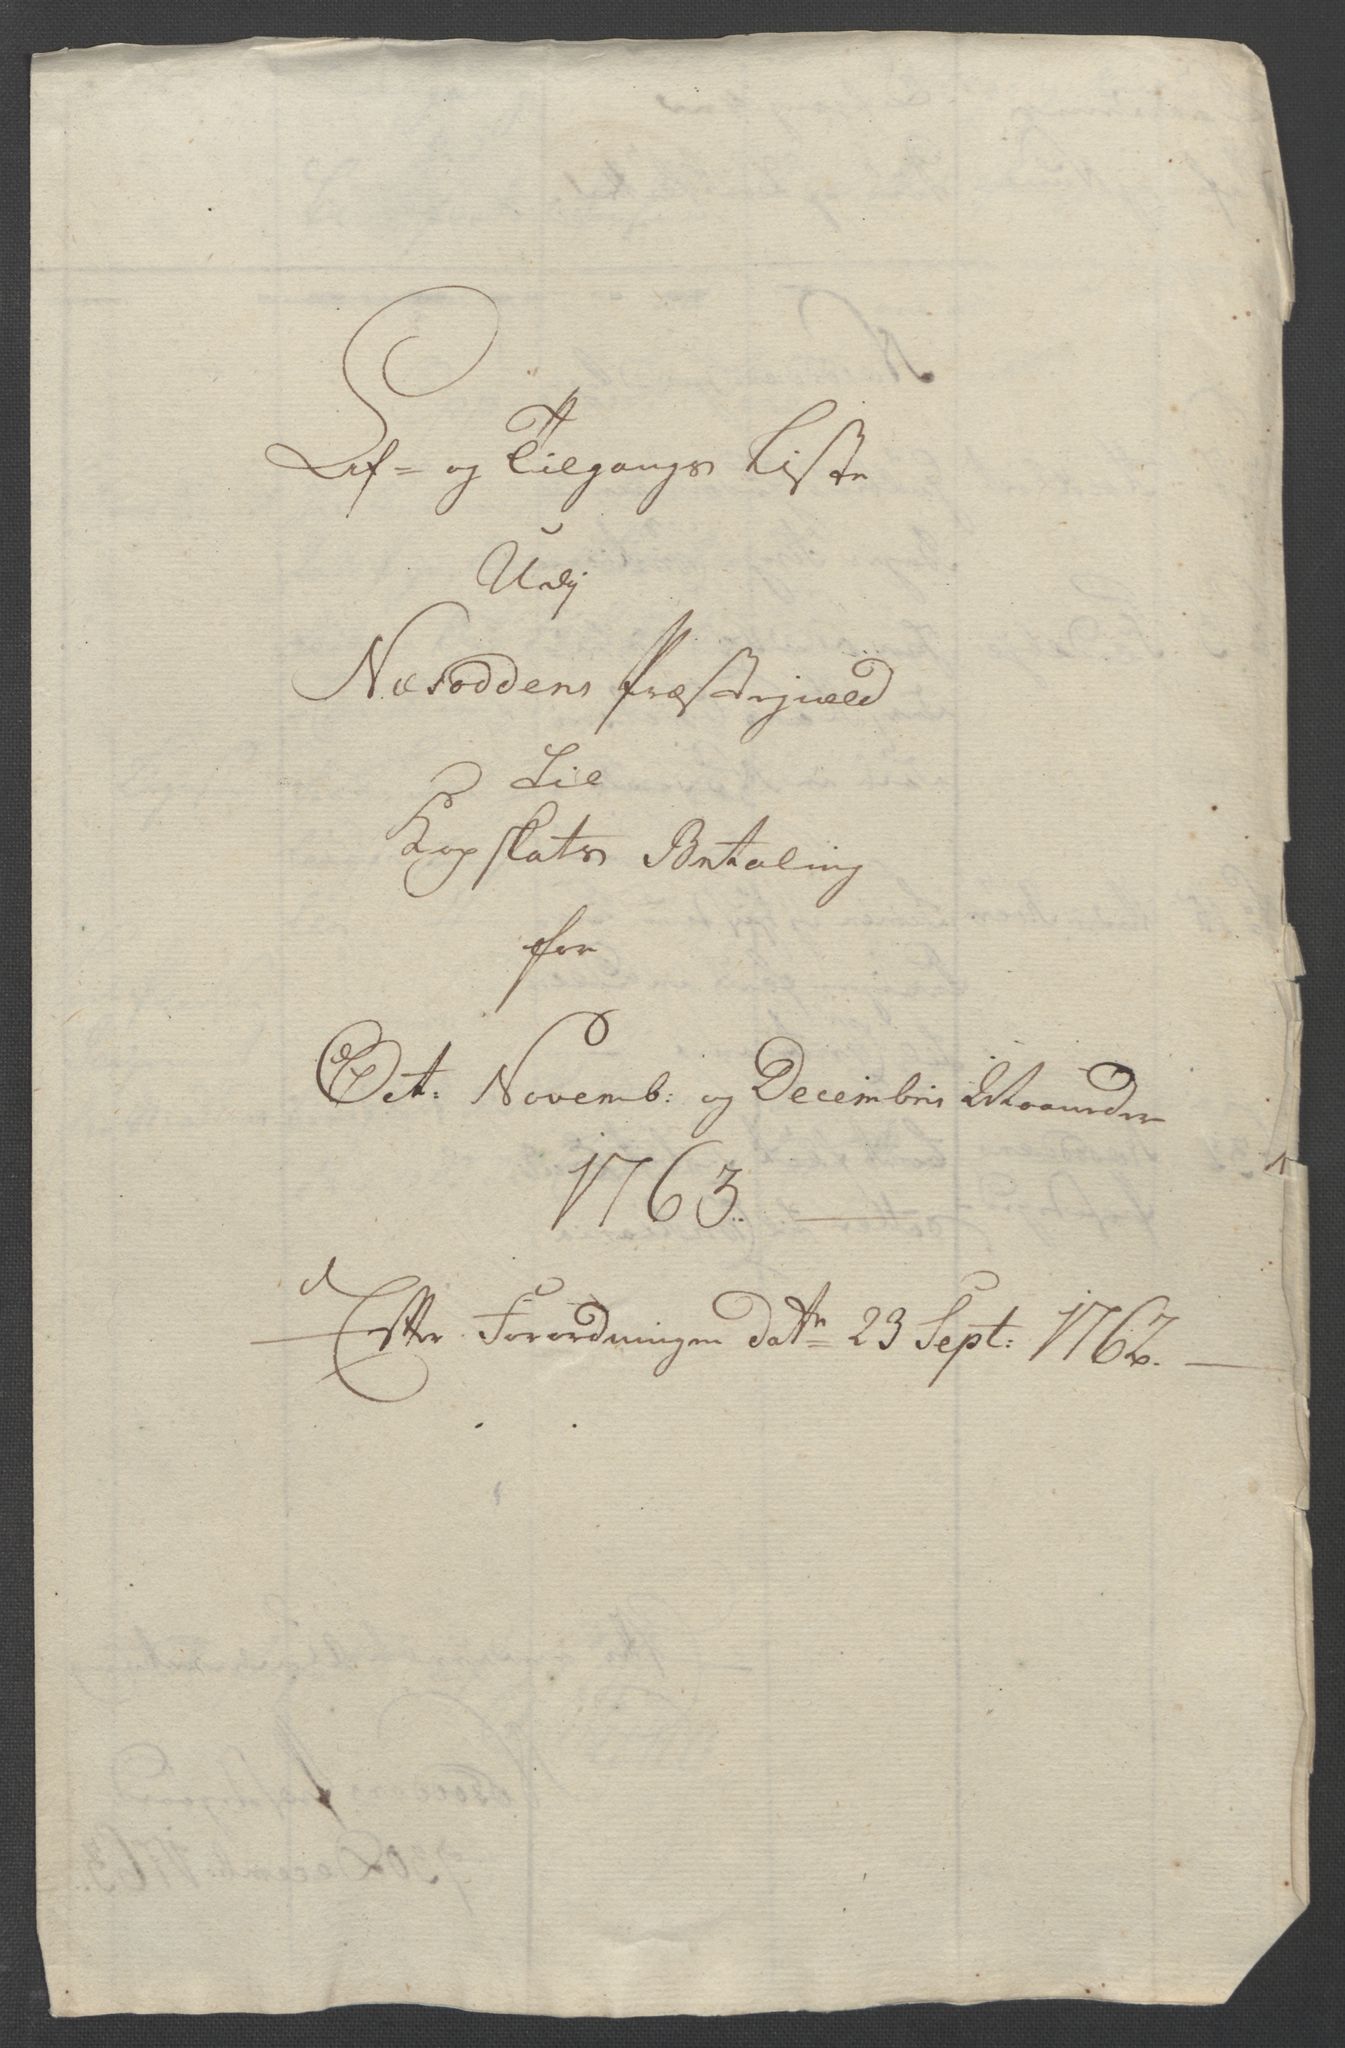 Af- og Tilgangs Liste
Udj
Næsoddens Præstegield
Til
Kopskatts Betaling
for
Oct: Novemb: og Decembris Maaneder
1763.
Efter Forordningen datn 23 Sept: 1762.